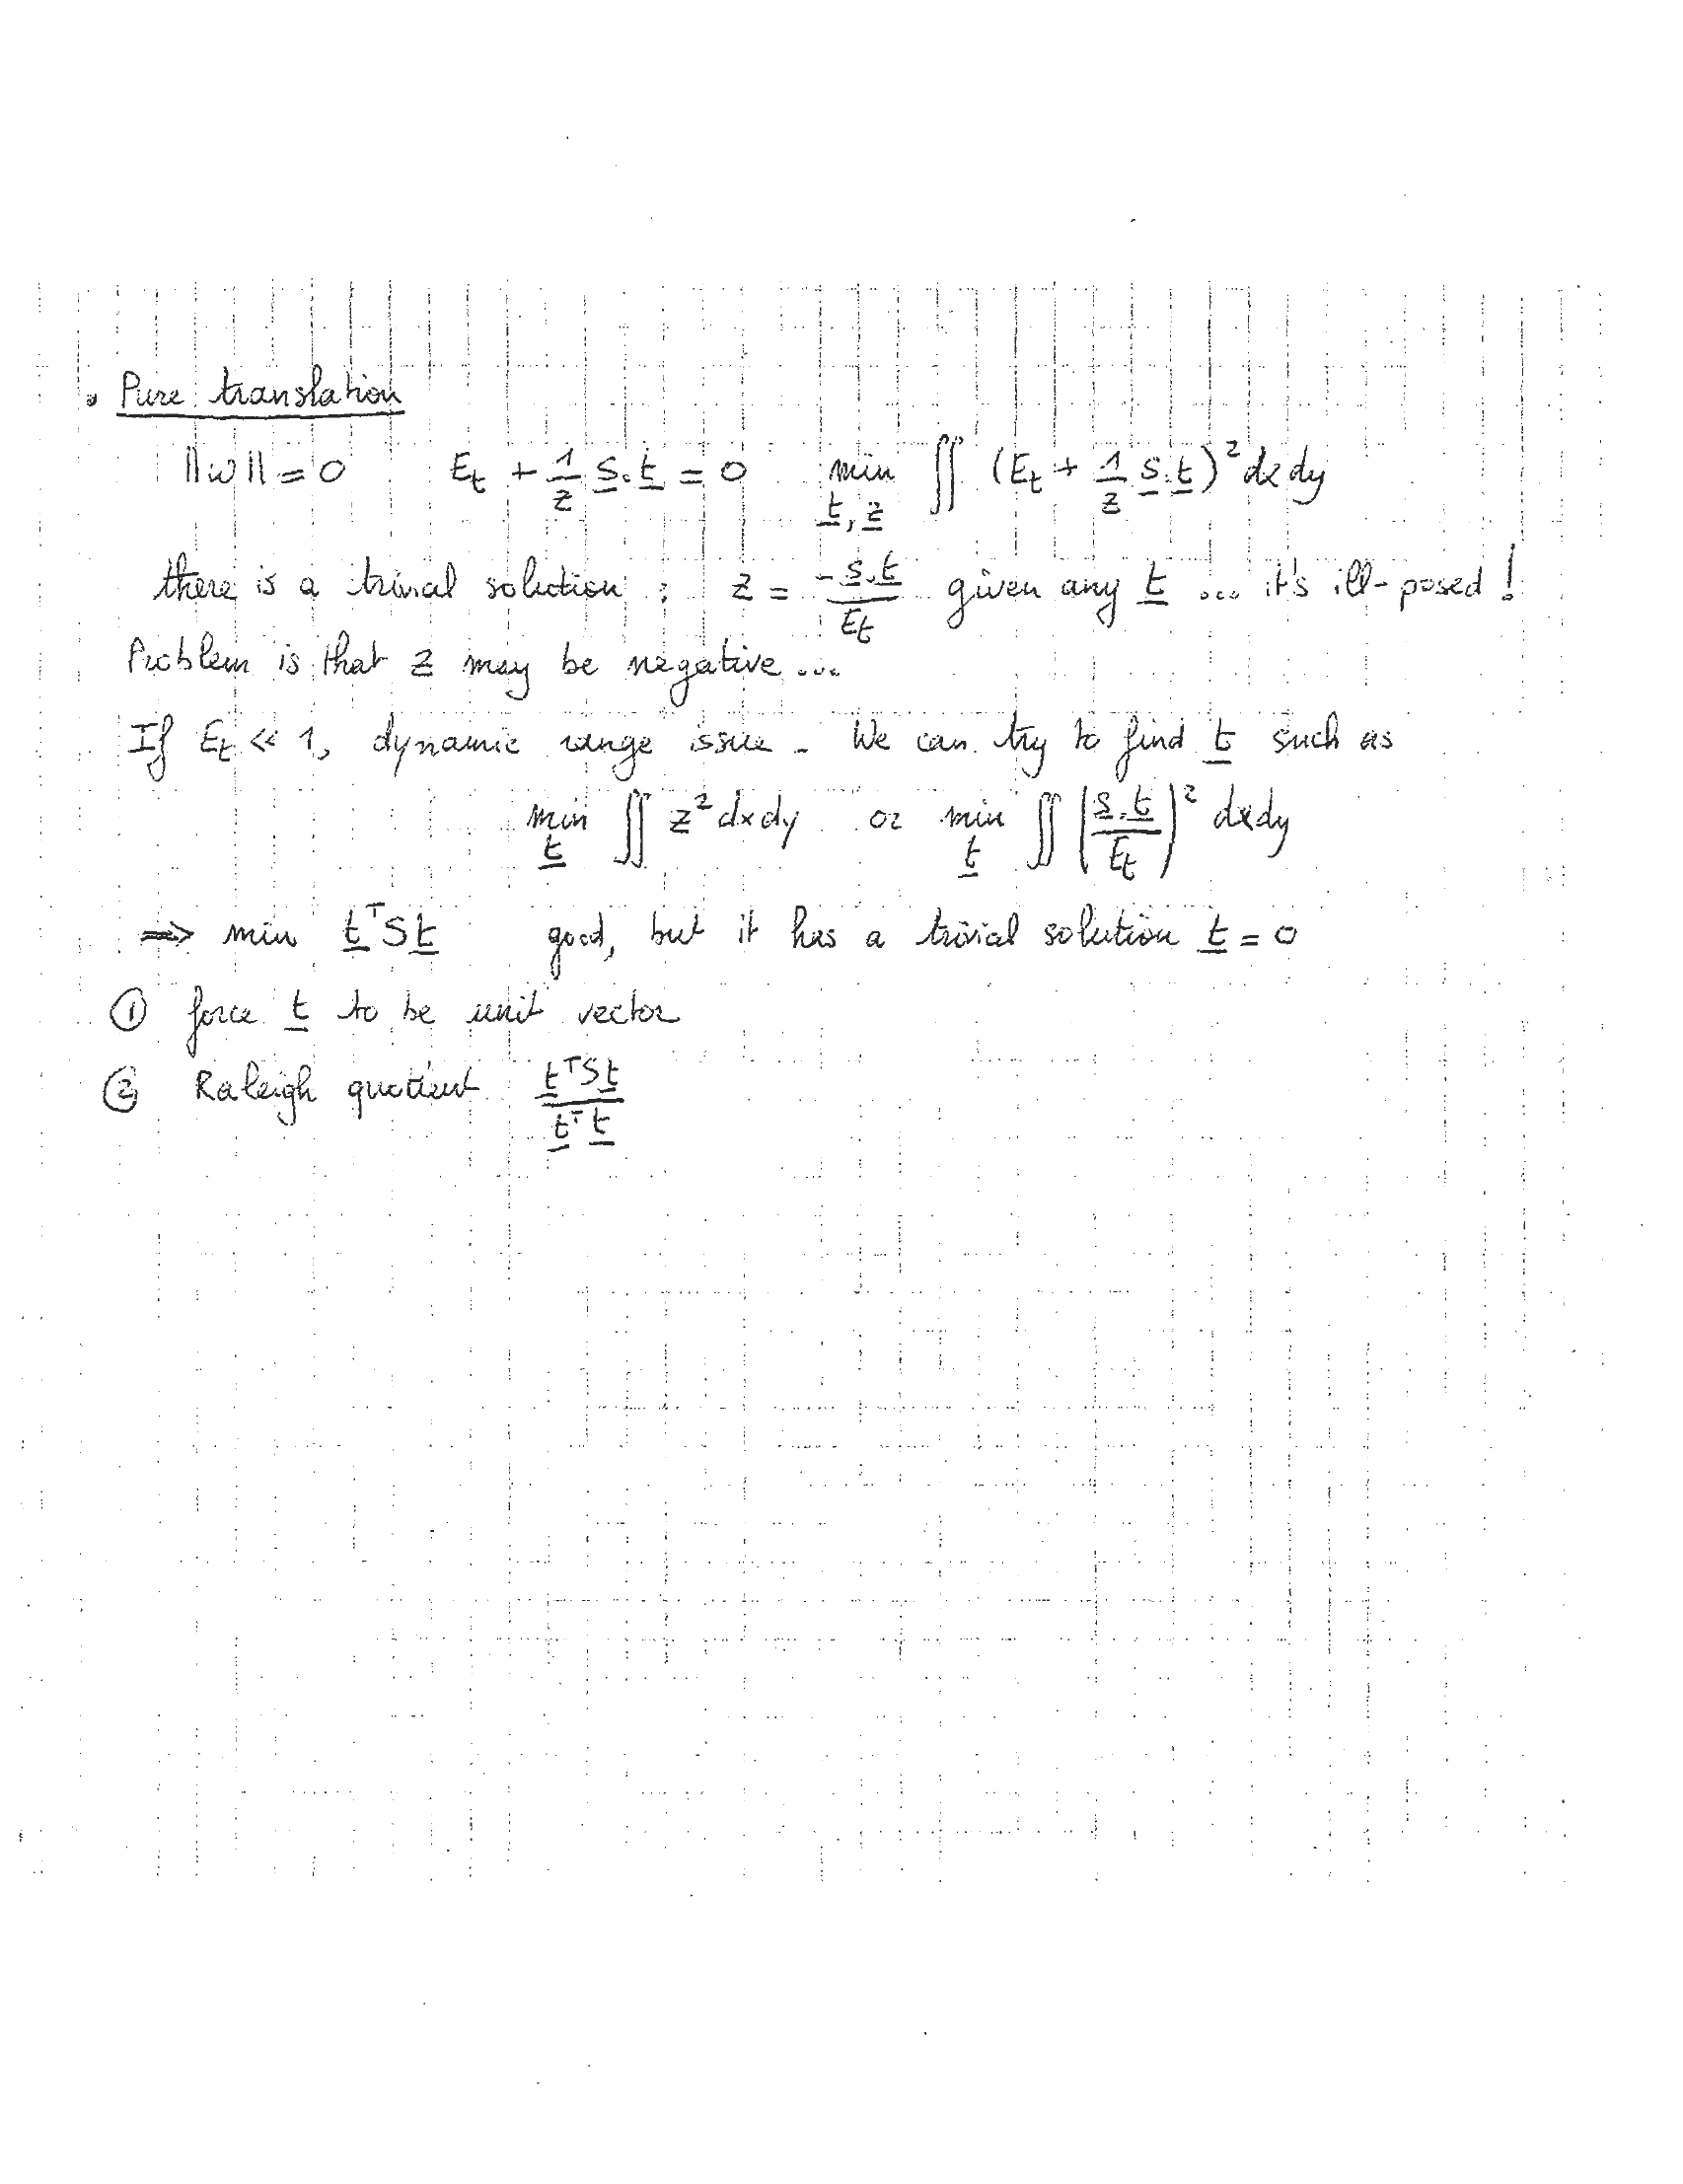 • Pure translation
||ω|| = 0   E_t + 1/z s̲.t̲ = 0   min_{t̲, z̲} ∬ (E_t + 1/z s̲.t̲)² dx dy
there is a trivial solution : z = -s̲.t̲/E_t given any t̲ ... it's ill-posed !
Problem is that z may be negative ...
If E_t << 1, dynamic range issue - We can try to find t̲ such as
min_{t̲} ∬ z² dx dy or min_{t̲} ∬ (s̲.t̲/E_t)² dx dy
⇒ min t̲ᵀSt̲ good, but it has a trivial solution t̲ = 0
① force t̲ to be unit vector
② Raleigh quotient t̲ᵀSt̲/t̲ᵀt̲